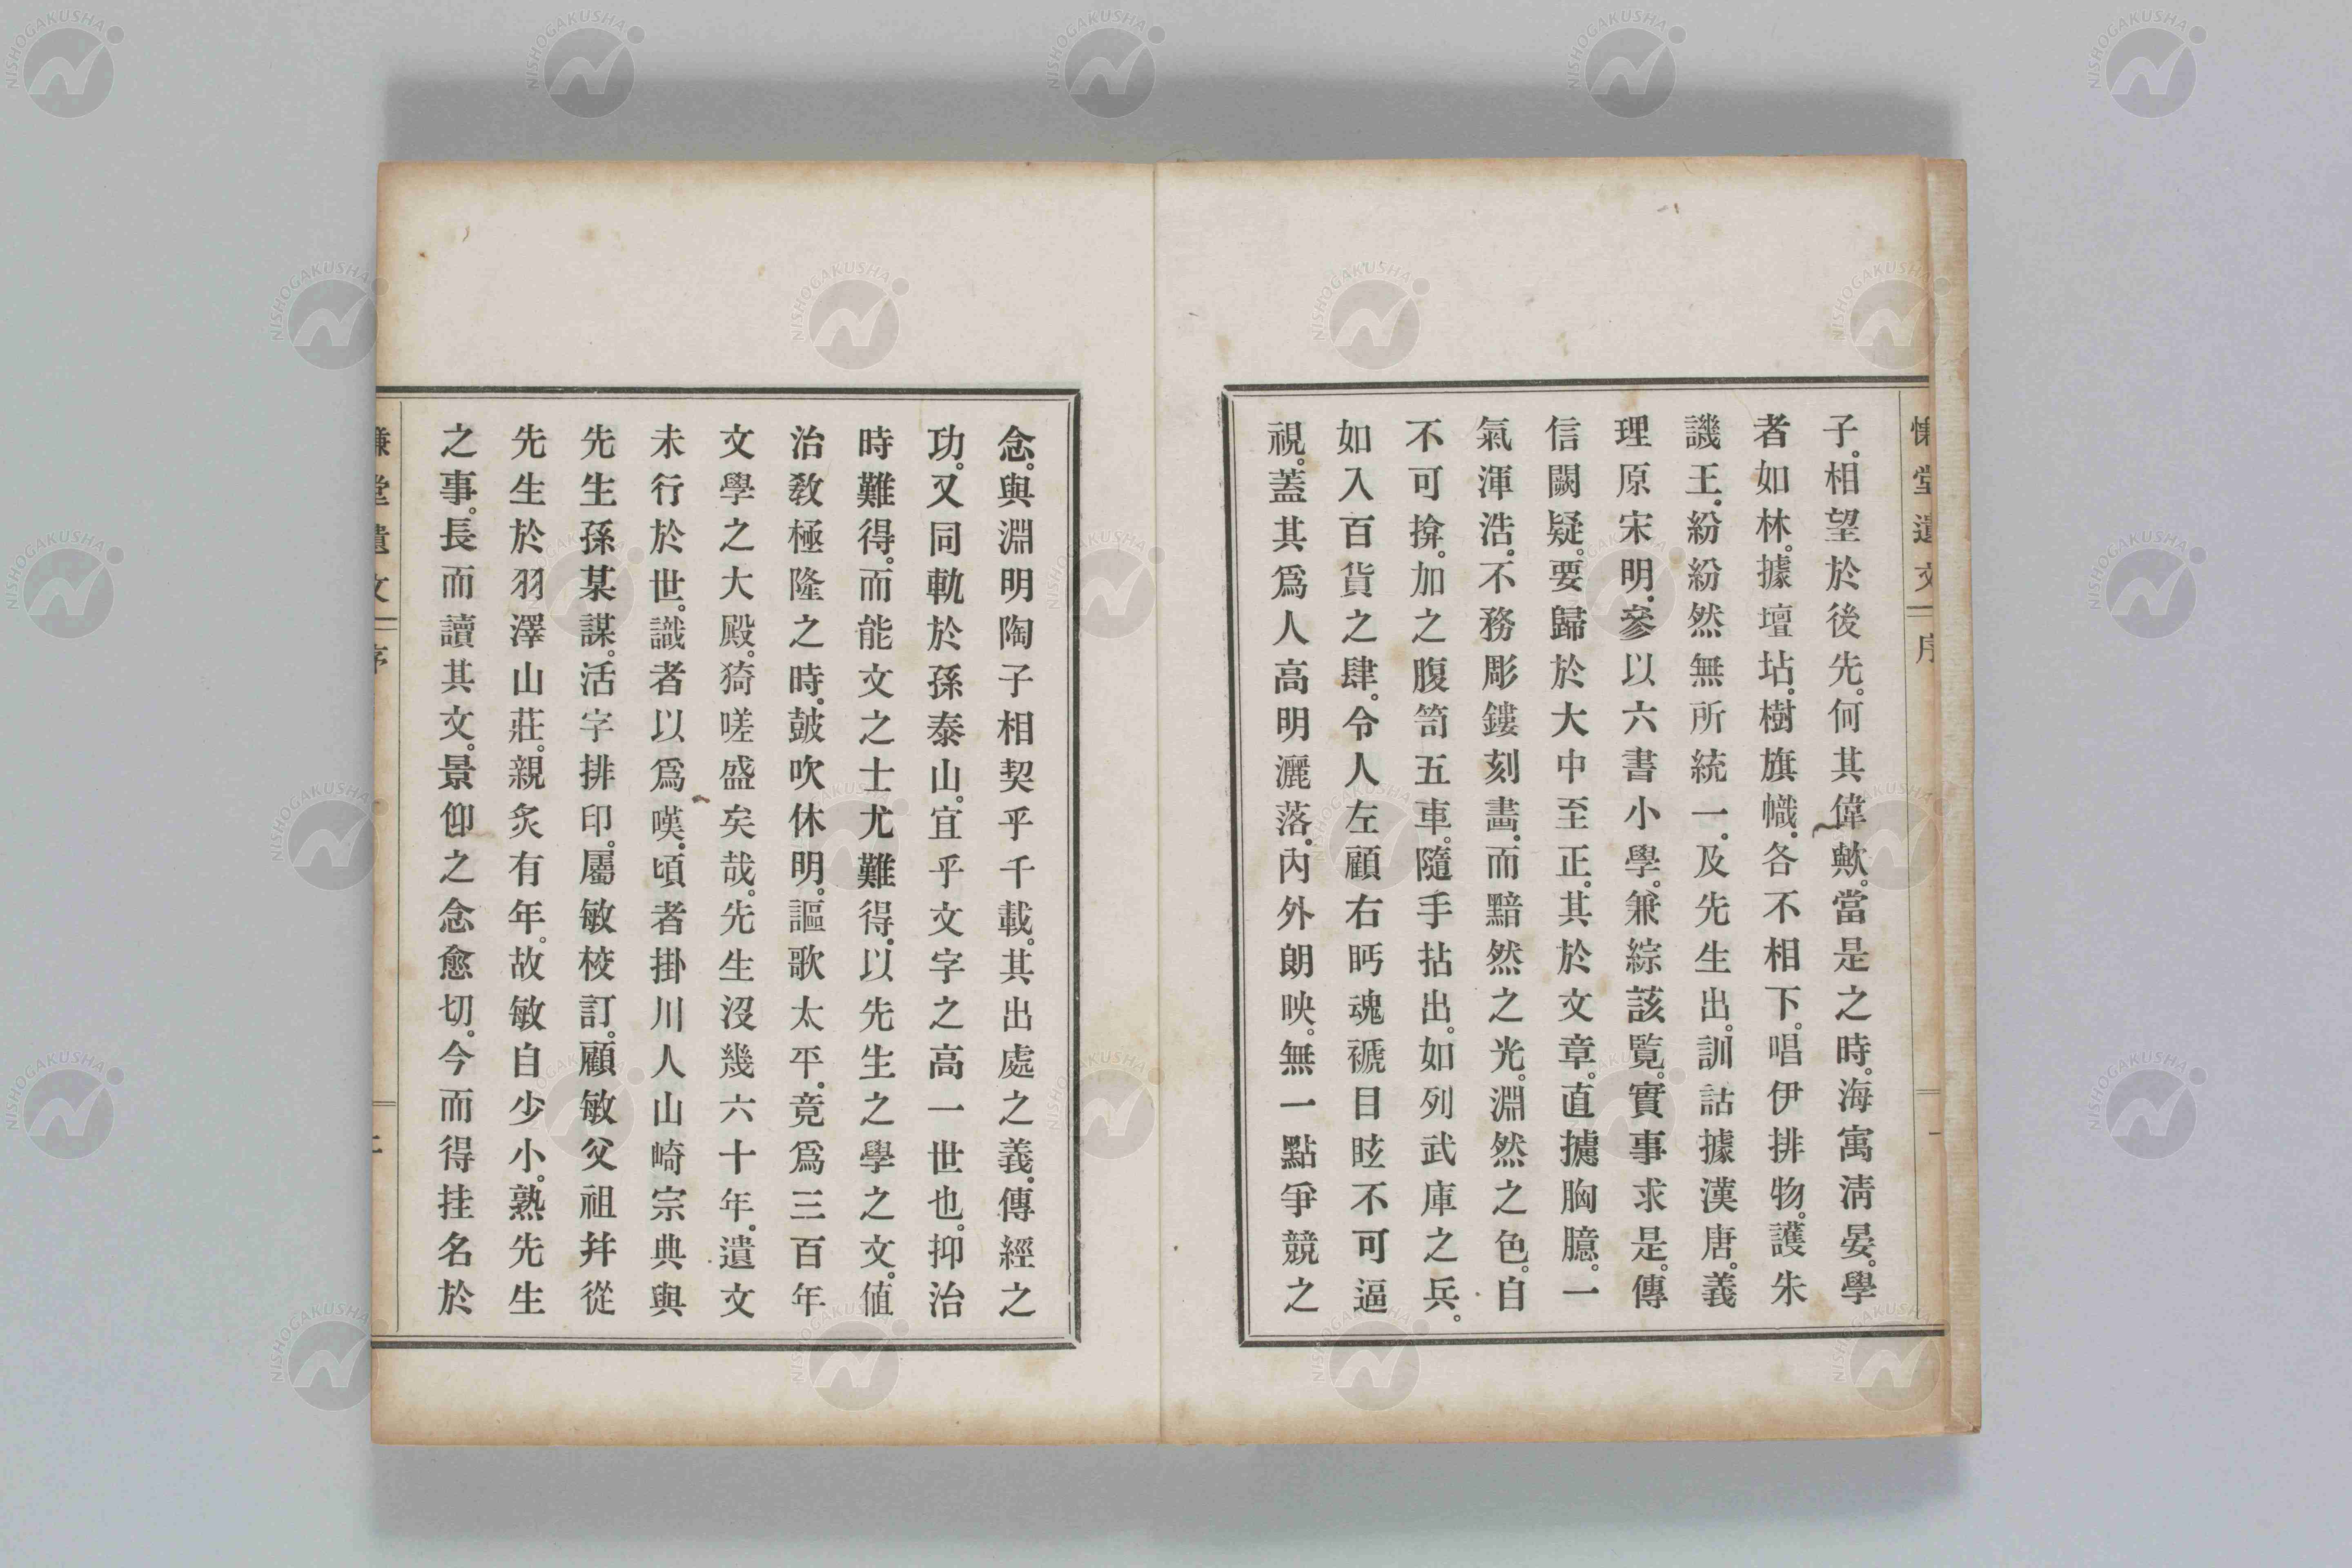 慊堂遺文 序 一
子。相望於後先。何其偉歟。當是之時。海寓淸晏。學
者如林。據壇坫。樹旗幟。各不相下。唱伊排物。護朱
譏王。紛紛然無所統一。及先生出。訓詁據漢唐。義
理原宋明。參以六書小學。兼綜該覽。實事求是。傳
信闕疑。要歸於大中至正。其於文章。直攄胸臆。一
氣渾浩。不務彫鏤刻畫。而黯然之光。淵然之色。自
不可揜。加之腹笥五車。隨手拈出。如列武庫之兵。
如入百貨之肆。令人左顧右眄魂褫目眩不可逼
視。蓋其爲人高明灑落。內外朗映。無一點爭競之
念。與淵明陶子相契乎千載。其出處之義。傳經之
功。又同軌於孫泰山。宜乎文字之高一世也。抑治
時難得。而能文之士尤難得。以先生之學之文。値
治敎極隆之時。鼓吹休明。謳歌太平。竟爲三百年
文學之大殿。猗嗟盛矣哉。先生沒幾六十年。遺文
未行於世。識者以爲嘆。頃者掛川人山崎宗典與
先生孫某謀。活字排印。屬敏校訂。顧敏父祖幷從
先生於羽澤山莊。親炙有年。故敏自少小。熟先生
之事。長而讀其文。景仰之念愈切。今而得挂名於
慊堂遺文 序
NISHOGAKUSHA